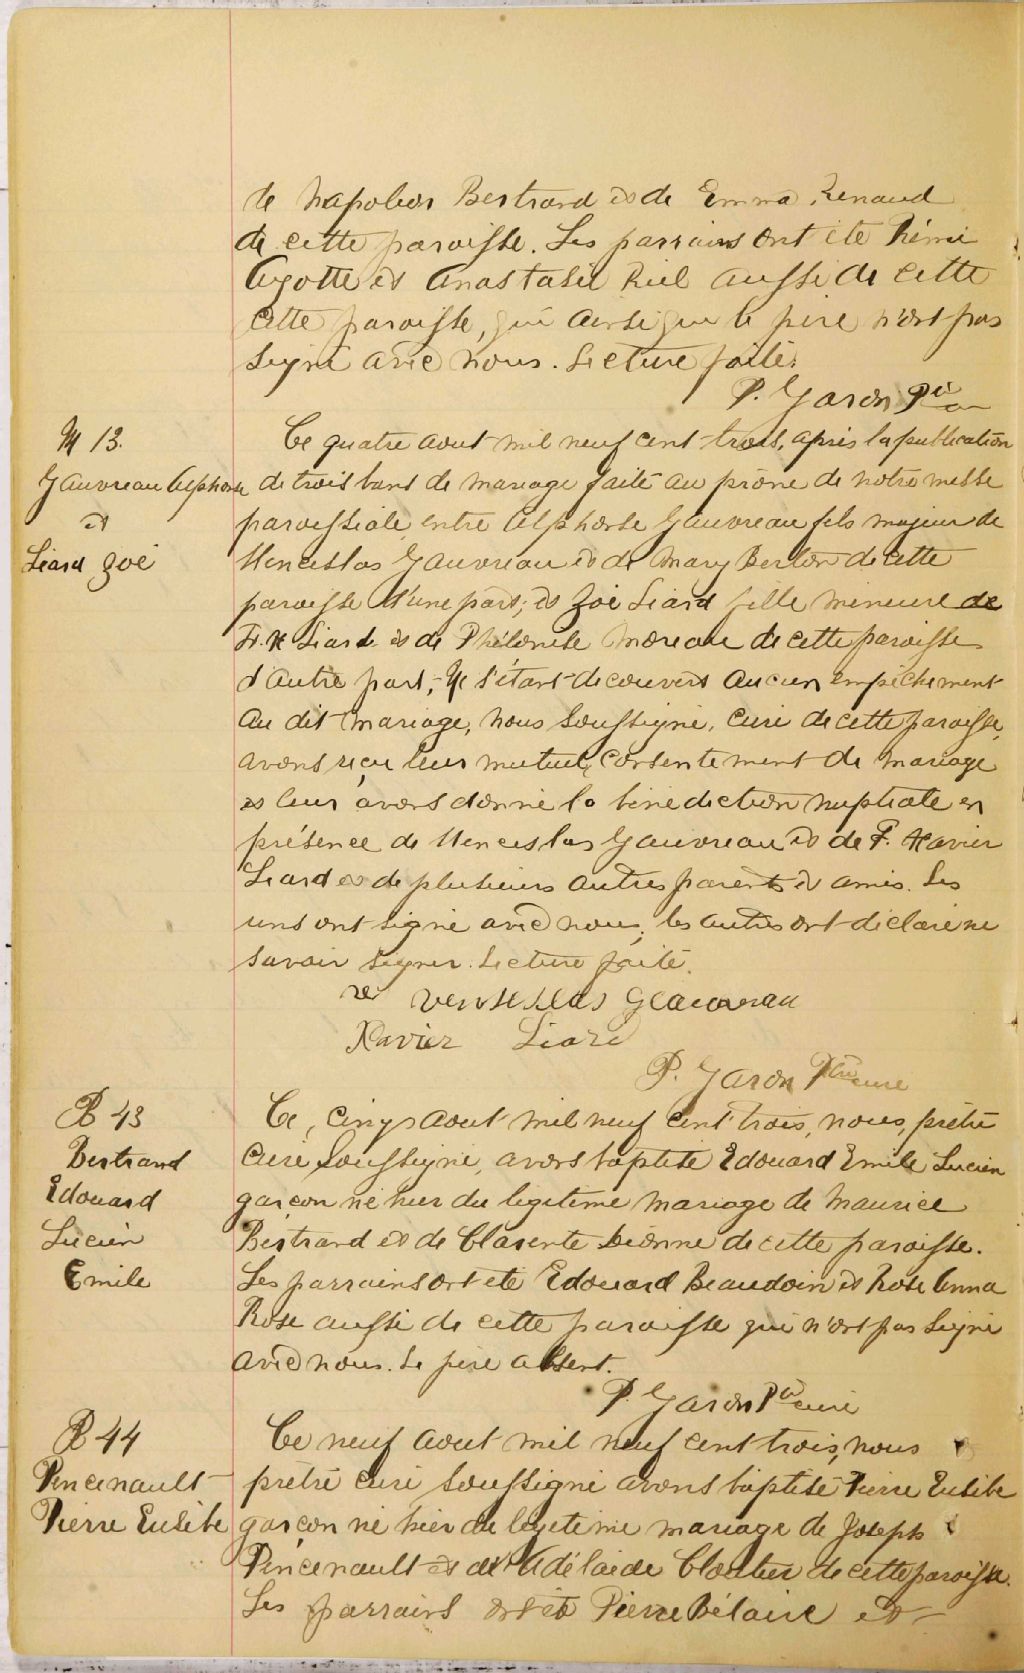 de Napoleon Bertrand et de Emma Renaud
de cette paroisse. Les parrains ont été Rémi
Ayotte et Anastasie Riel aussi de cette
cette paroisse, qui ainsi que le père n'ont pas
signé avec nous. Lecture faite.
P. Garon Ptre
M 13.
Gauvreau Alphonse
et
Liard Zoé
Ce quatre aout mil neuf cent trois, après la publication
de trois bans de mariage faite au prône de notre messe
paroissiale entre Alphonse Gauvreau fils majeur de
Venceslas Gauvreau et de Mary Berton de cette
paroisse d'une part; et Zoé Liard fille mineure de
F. X Liard et de Philomise Moreau de cette paroisse
d'autre part; Ne s'étant découvert aucun empêchement
au dit mariage, nous soussigné, curé de cette paroisse,
avons reçu leur mutuel consentement de mariage
et leur avons donné la bénédiction nuptiale en
présence de Venceslas Gauvreau et de F. Xavier
Liard et de plusieurs autres parents et amis. Les
uns ont signé avec nous, les autres ont déclaré ne
savoir signer. Lecture faite.
Venseslas Gauvreau
Xavier Liard
P. Garon Ptre curé
B 43
Bertrand
Edouard
Lucien
Emile
Ce, cinq aout mil neuf cent trois, nous, prêtre
curé soussigné, avons baptisé Edouard Emile Lucien
garçon né hier du légitime mariage de Maurice
Bertrand et de Clarente Dionne de cette paroisse.
Les parrains ont été Edouard Beaudoin et Rose Anna
Rose aussi de cette paroisse qui n'ont pas signé
avec nous. Le père absent.
P. Garon Ptre curé
B 44
Pincenault
Pierre Eusèbe
Ce neuf aout mil neuf cent trois, nous
prêtre curé soussigné avons baptisé Pierre Eusèbe
garçon né hier du légitime mariage de Joseph
Pincenault et de Adélaide Cloutier de cette paroisse.
Les parrains ont été Pierre Bélaire et